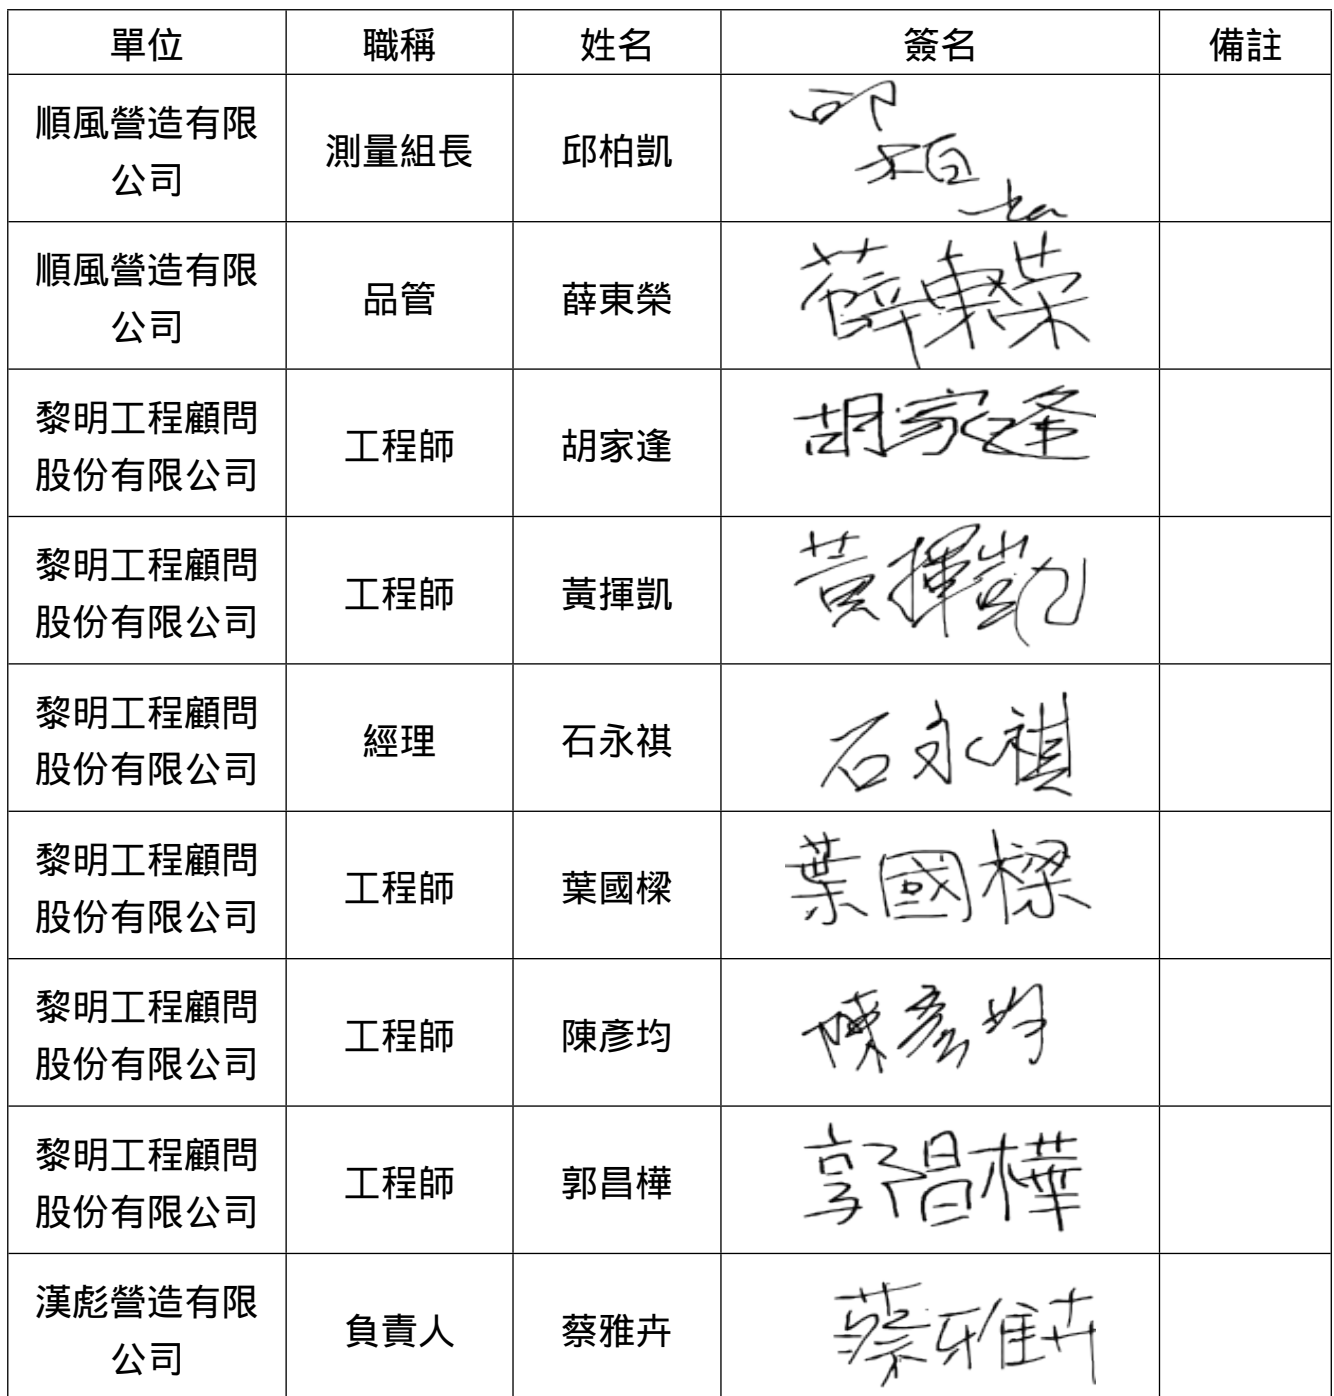 單位 職稱 姓名 簽名 備註
順風營造有限
公司 測量組長 邱柏凱 邱柏凱
順風營造有限
公司 品管 薛東榮 薛東荣
黎明工程顧問
股份有限公司 工程師 胡家逢 胡家逢
黎明工程顧問
股份有限公司 工程師 黃揮凱 黃揮凱
黎明工程顧問
股份有限公司 經理 石永祺 石永祺
黎明工程顧問
股份有限公司 工程師 葉國樑 葉國樑
黎明工程顧問
股份有限公司 工程師 陳彥均 陳彥均
黎明工程顧問
股份有限公司 工程師 郭昌樺 郭昌樺
漢彪營造有限
公司 負責人 蔡雅卉 蔡雅卉